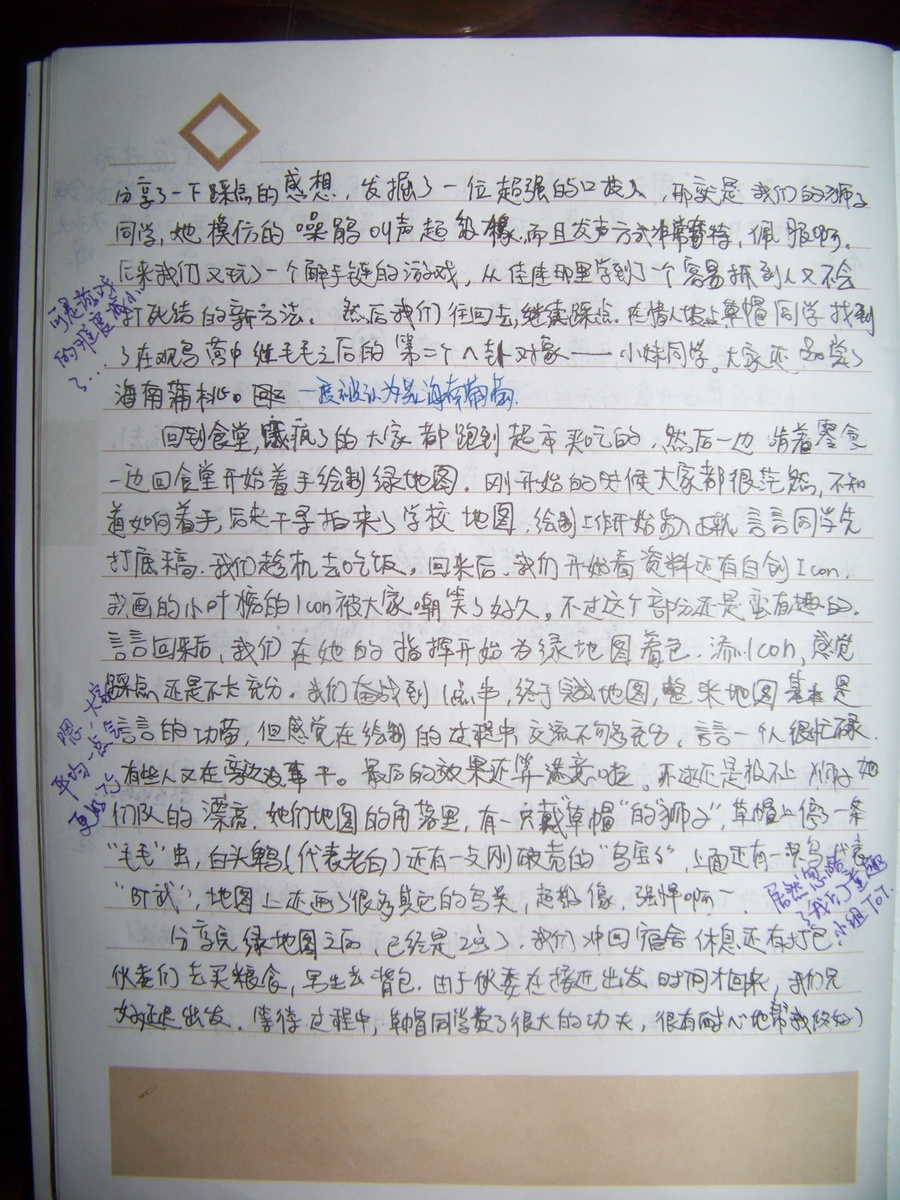 分享了一下踩点的感想，发掘了一位超强的口技人，那就是我们的狮子
同学，她模仿的噪鹃叫声超级像，而且发声方式非常奇特，佩服啊。
后来我们又玩了一个解手链的游戏，从佳佳那里学到了一个容易抓到人又不会
打死结的新方法。然后我们往回去，继续踩点。在情人坡上草帽同学找到
了在观鸟营中继毛毛之后的第二个八卦对象——小妹同学。大家还品尝了
海南蒲桃。一度被认为是海南葡萄。
可是游戏
的难度减小
了…
回到食堂，疯了的大家都跑到超市买吃的，然后一边啃着零食
一边回食堂开始着手绘制绿地图。刚开始的时候大家都很茫然，不知
道如何着手，后来干寻拍来了学校地图，绘制工作开始，言言同学先
打底稿，我们趁机去吃饭。回来后，我们开始看资料还有自创Icon，
我画的小叶榕的Icon被大家嘲笑了好久。不过这个部分还是蛮有趣的。
言言回来后，我们在她的指挥开始为绿地图着色，添Icon，感觉
踩点还是不太充分。我们奋战到1点半，终于完成地图，整张地图基本是
言言的功劳，但感觉在绘制的过程中交流不够充分，言言一个人很忙碌，
有些人又在旁边没事干。最后的效果还算满意啦。不过还是极不上狮子她
们队的漂亮，她们地图的角落里，有一只戴“草帽”的“狮子”，草帽上停了一条
“毛毛”虫，白头鹎（代表老白）还有一只刚破壳的“鸟蛋”，上面还有
，地图上还画了很多其它的鸟类，超级像，强悍啊～
嗯，大家
平均一点
更好
居然忽略
了我们
小组TOT
分享完绿地图之后，已经是2点了，我们冲回宿舍休息还有打包，
伙委们去买粮食，男生去背包。由于伙委在接近出发时间才回来，我们只
好延迟出发。等待过程中，草帽同学费了很大的功夫，很有耐心地帮我修好